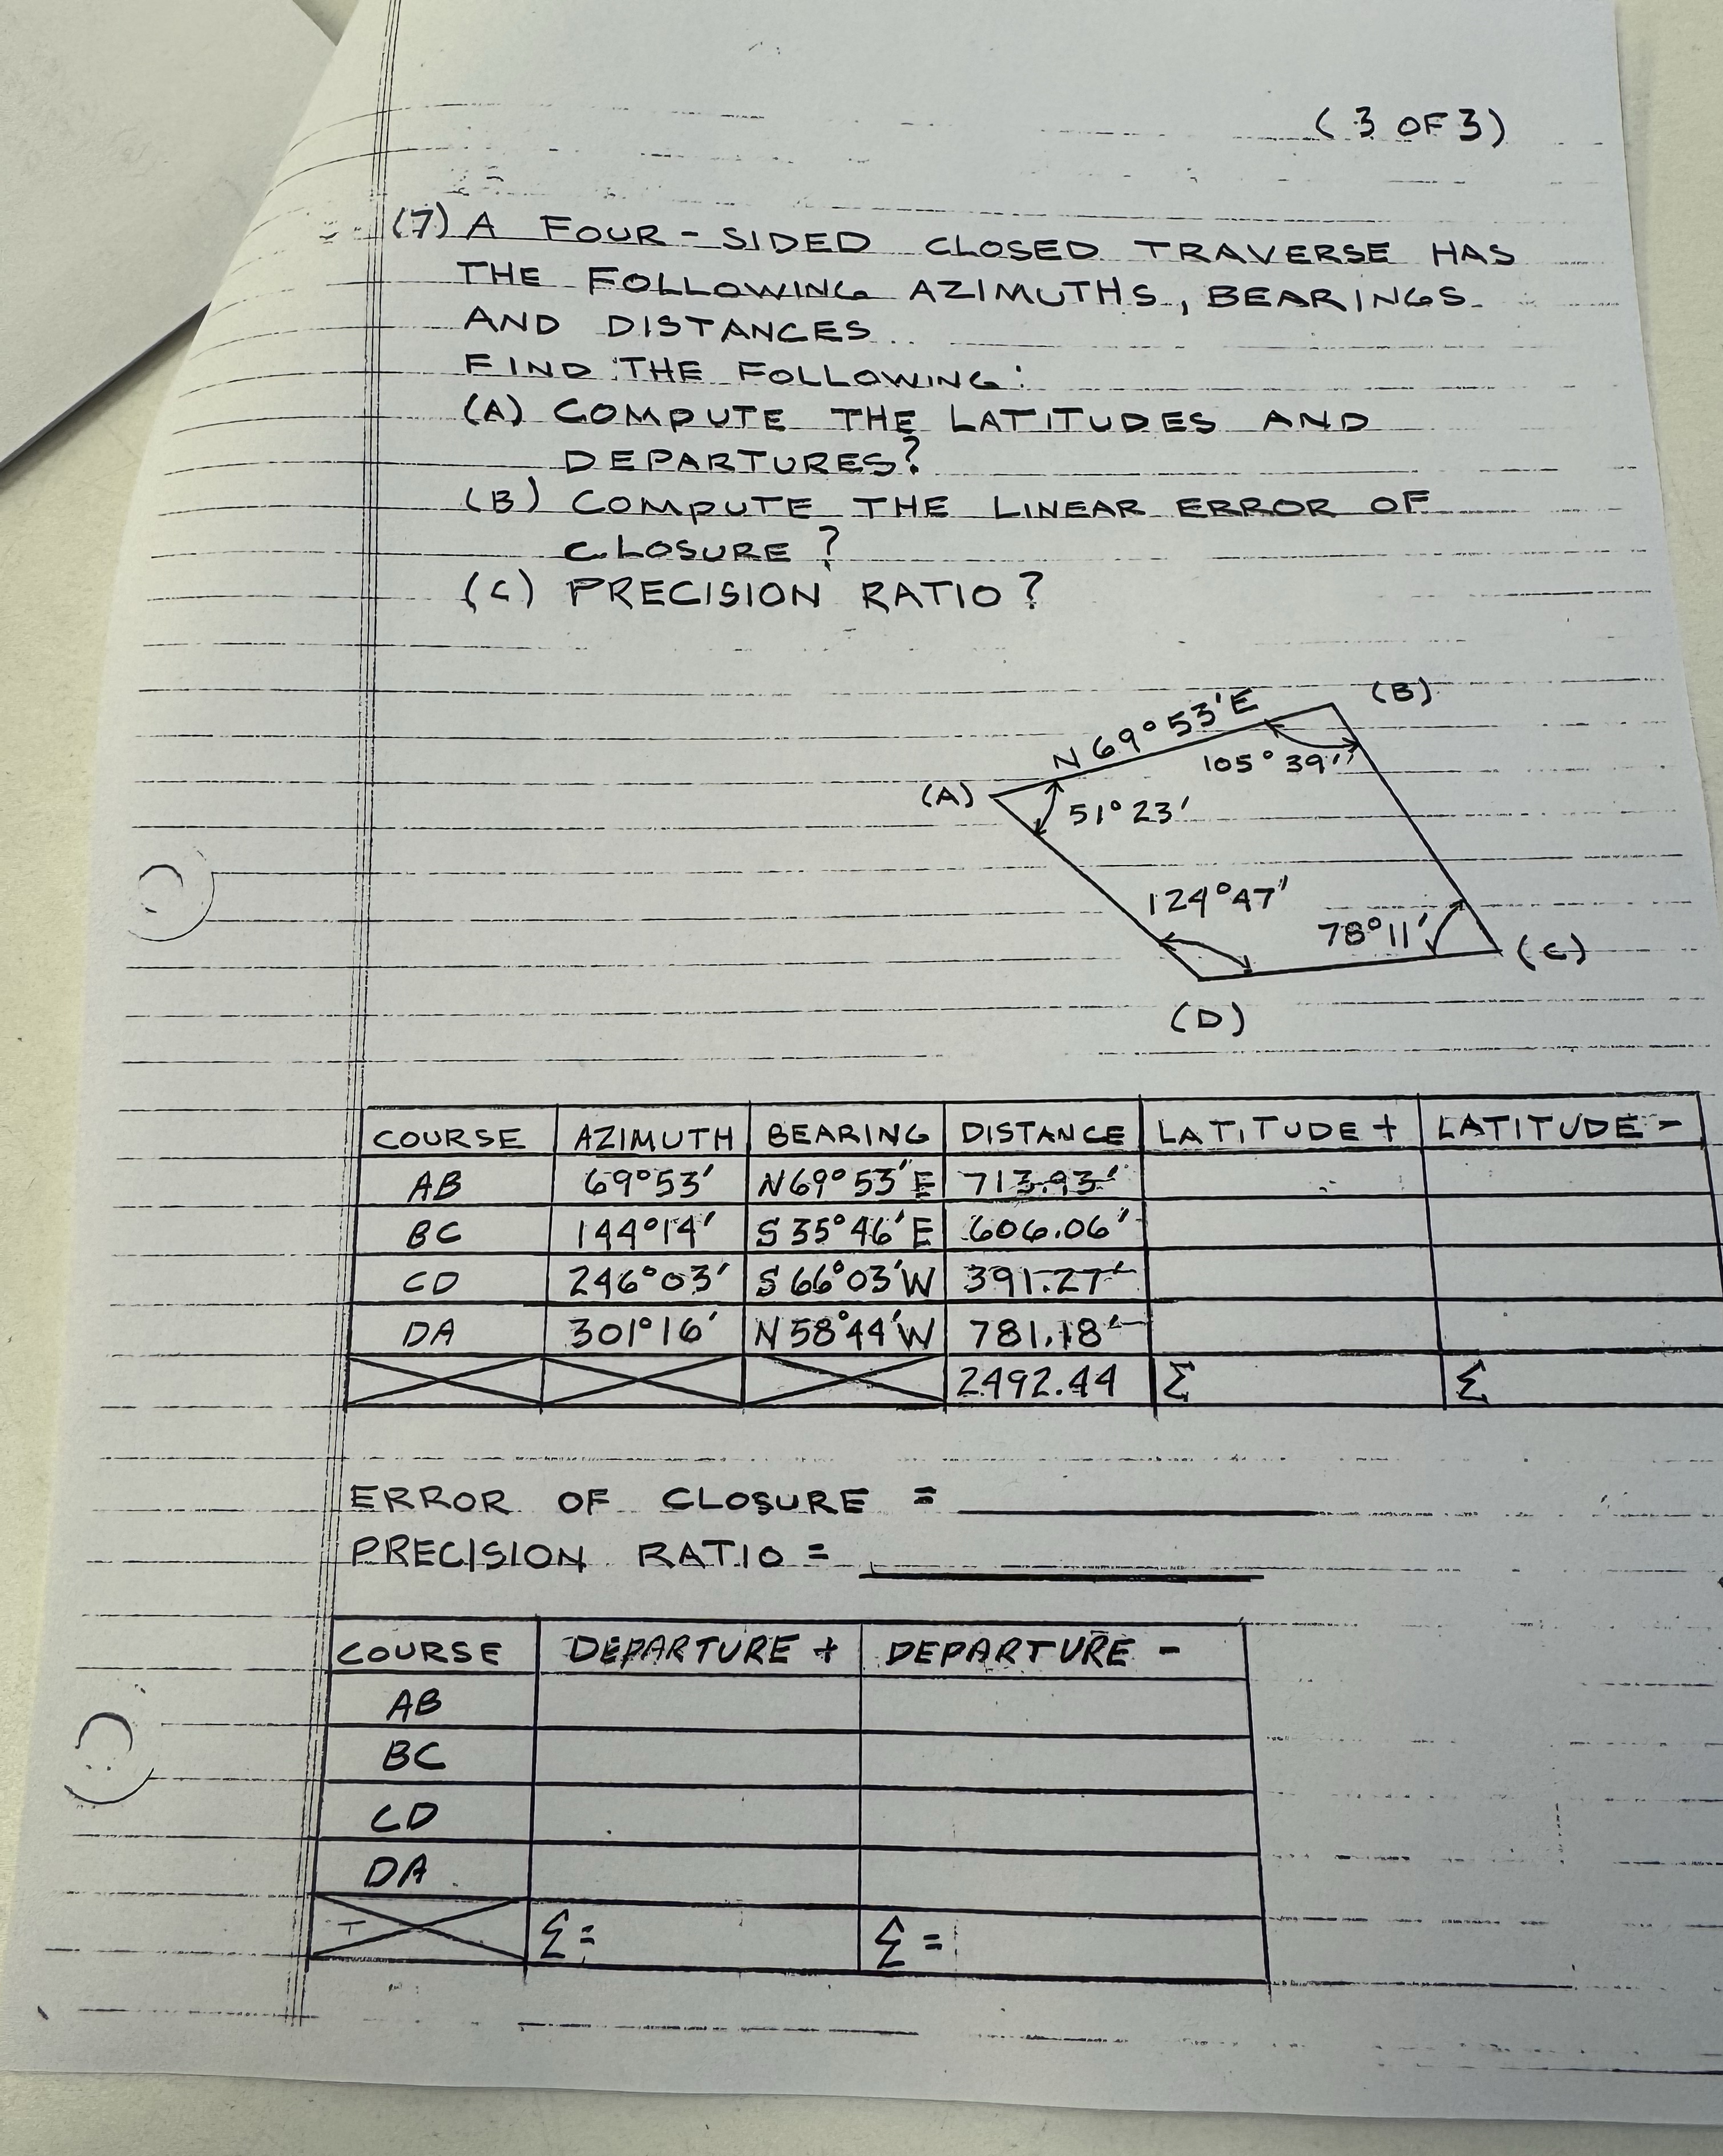 (3 OF 3)
(7) A FOUR-SIDED CLOSED TRAVERSE HAS
THE FOLLOWING AZIMUTHS, BEARINGS
AND DISTANCES
FIND THE FOLLOWING:
(A) COMPUTE THE LATITUDES AND
DEPARTURES?
(B) COMPUTE THE LINEAR ERROR OF
CLOSURE?
(C) PRECISION RATIO?
(B)
N 69°53'E
105°39'
(A)
51°23'
124°47'
78°11'
(C)
(D)
COURSE AZIMUTH BEARING DISTANCE LATITUDE + LATITUDE -
AB 69°53' N69°53'E 713.93'
BC 144°14' S 35°46'E 606.06'
CD 246°03' S 66°03'W 391.27'
DA 301°16' N 58°44'W 781.18'
2492.44 Σ Σ
ERROR OF CLOSURE =
PRECISION RATIO =
COURSE DEPARTURE + DEPARTURE -
AB
BC
CD
DA
Σ= Σ=